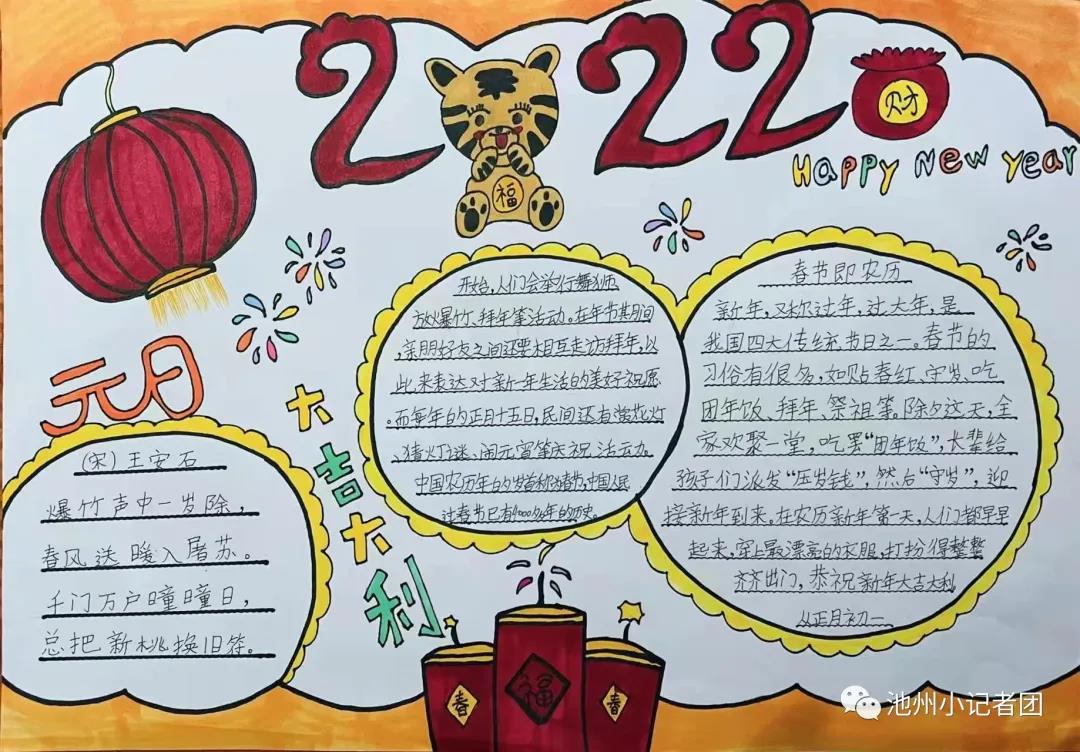 2022
财
Happy New year
福
元日
(宋)王安石
爆竹声中一岁除，
春风送暖入屠苏。
千门万户曈曈日，
总把新桃换旧符。
大吉大利
开始,人们会举行舞狮
放爆竹、拜年等活动。在年节其期间
,亲朋好友之间还要相互走访拜年,以
此来表达对新一年生活的美好祝愿
。而每年的正月十五日,民间还有赏花灯
、猜灯谜、闹元宵等庆祝活动。
中国农历年的岁首称为春节,中国人民
过春节已有4000多年的历史
春节即农历
新年,又称过年,过大年,是
我国四大传统节日之一。春节的
习俗有很多,如贴春红、守岁、吃
团年饭、拜年、祭祖等,除夕这天,全
家欢聚一堂,吃罢“团年饭”,长辈给
孩子们派发“压岁钱”,然后“守岁”,迎
接新年到来。在农历新年第一天,人们都早早
起来,穿上最漂亮的衣服,打扮得整整
齐齐出门,恭祝新年大吉大利
从正月初一
春
福
春
池州小记者团